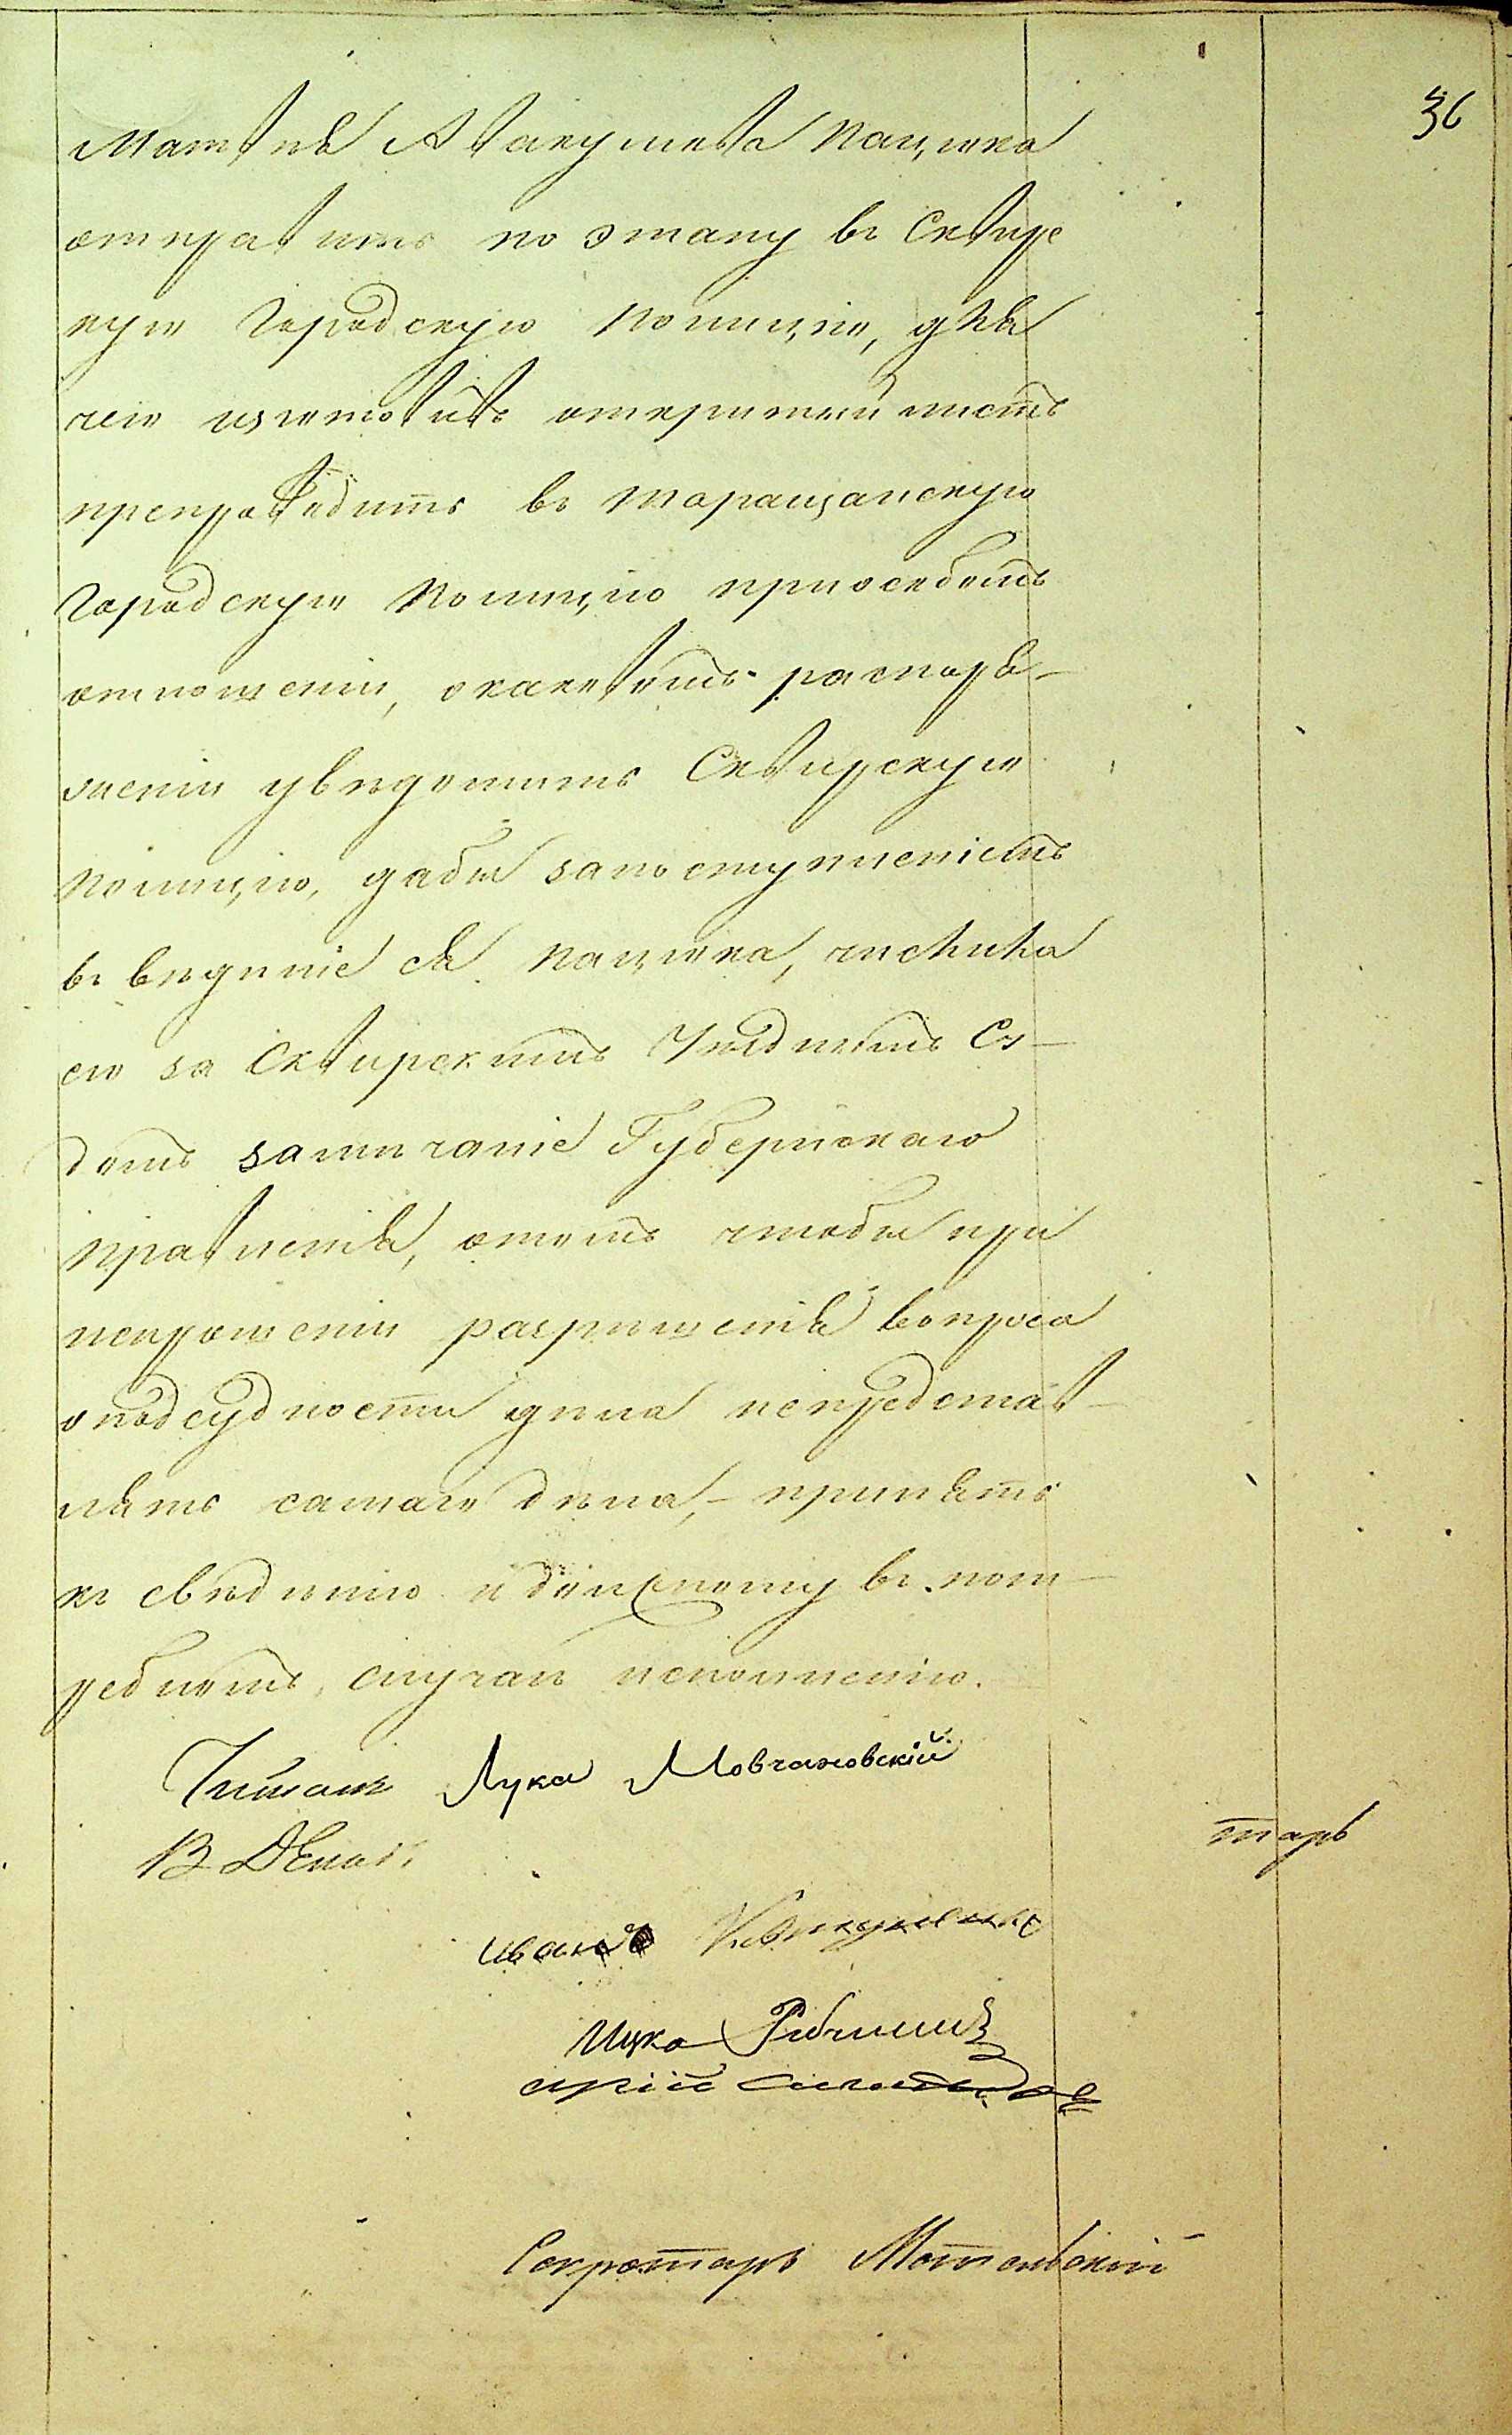 36
Матвѣя Авакумова Пацюка
отправить по этапу въ Сквирс
кую Городскую Полицію, для
чего изготовивъ открытый листъ
препроводить въ Таращанскую
Городскую Полицію приособомъ
отношеніи, окаковомъ распоря-
женіи увѣдомить Сквирскую
Полицію, дабы запоступленіемъ
въ вѣденіе ея Пацюка, числила
его за Сквирскимъ Уѣзднымъ Су-
домъ замѣчаніе Губернскаго
Правленія, отомъ чтобы при
испрошеніи разрѣшенія вопроса
оподсудности дѣла непредстав-
лять самаго дѣла,- принять
къ свѣденію и должному въ пот-
ребномъ случаѣ исполненію.
Читалъ Лука Мовчановскій
тарь
Иванъ
Ицко
Секретарь